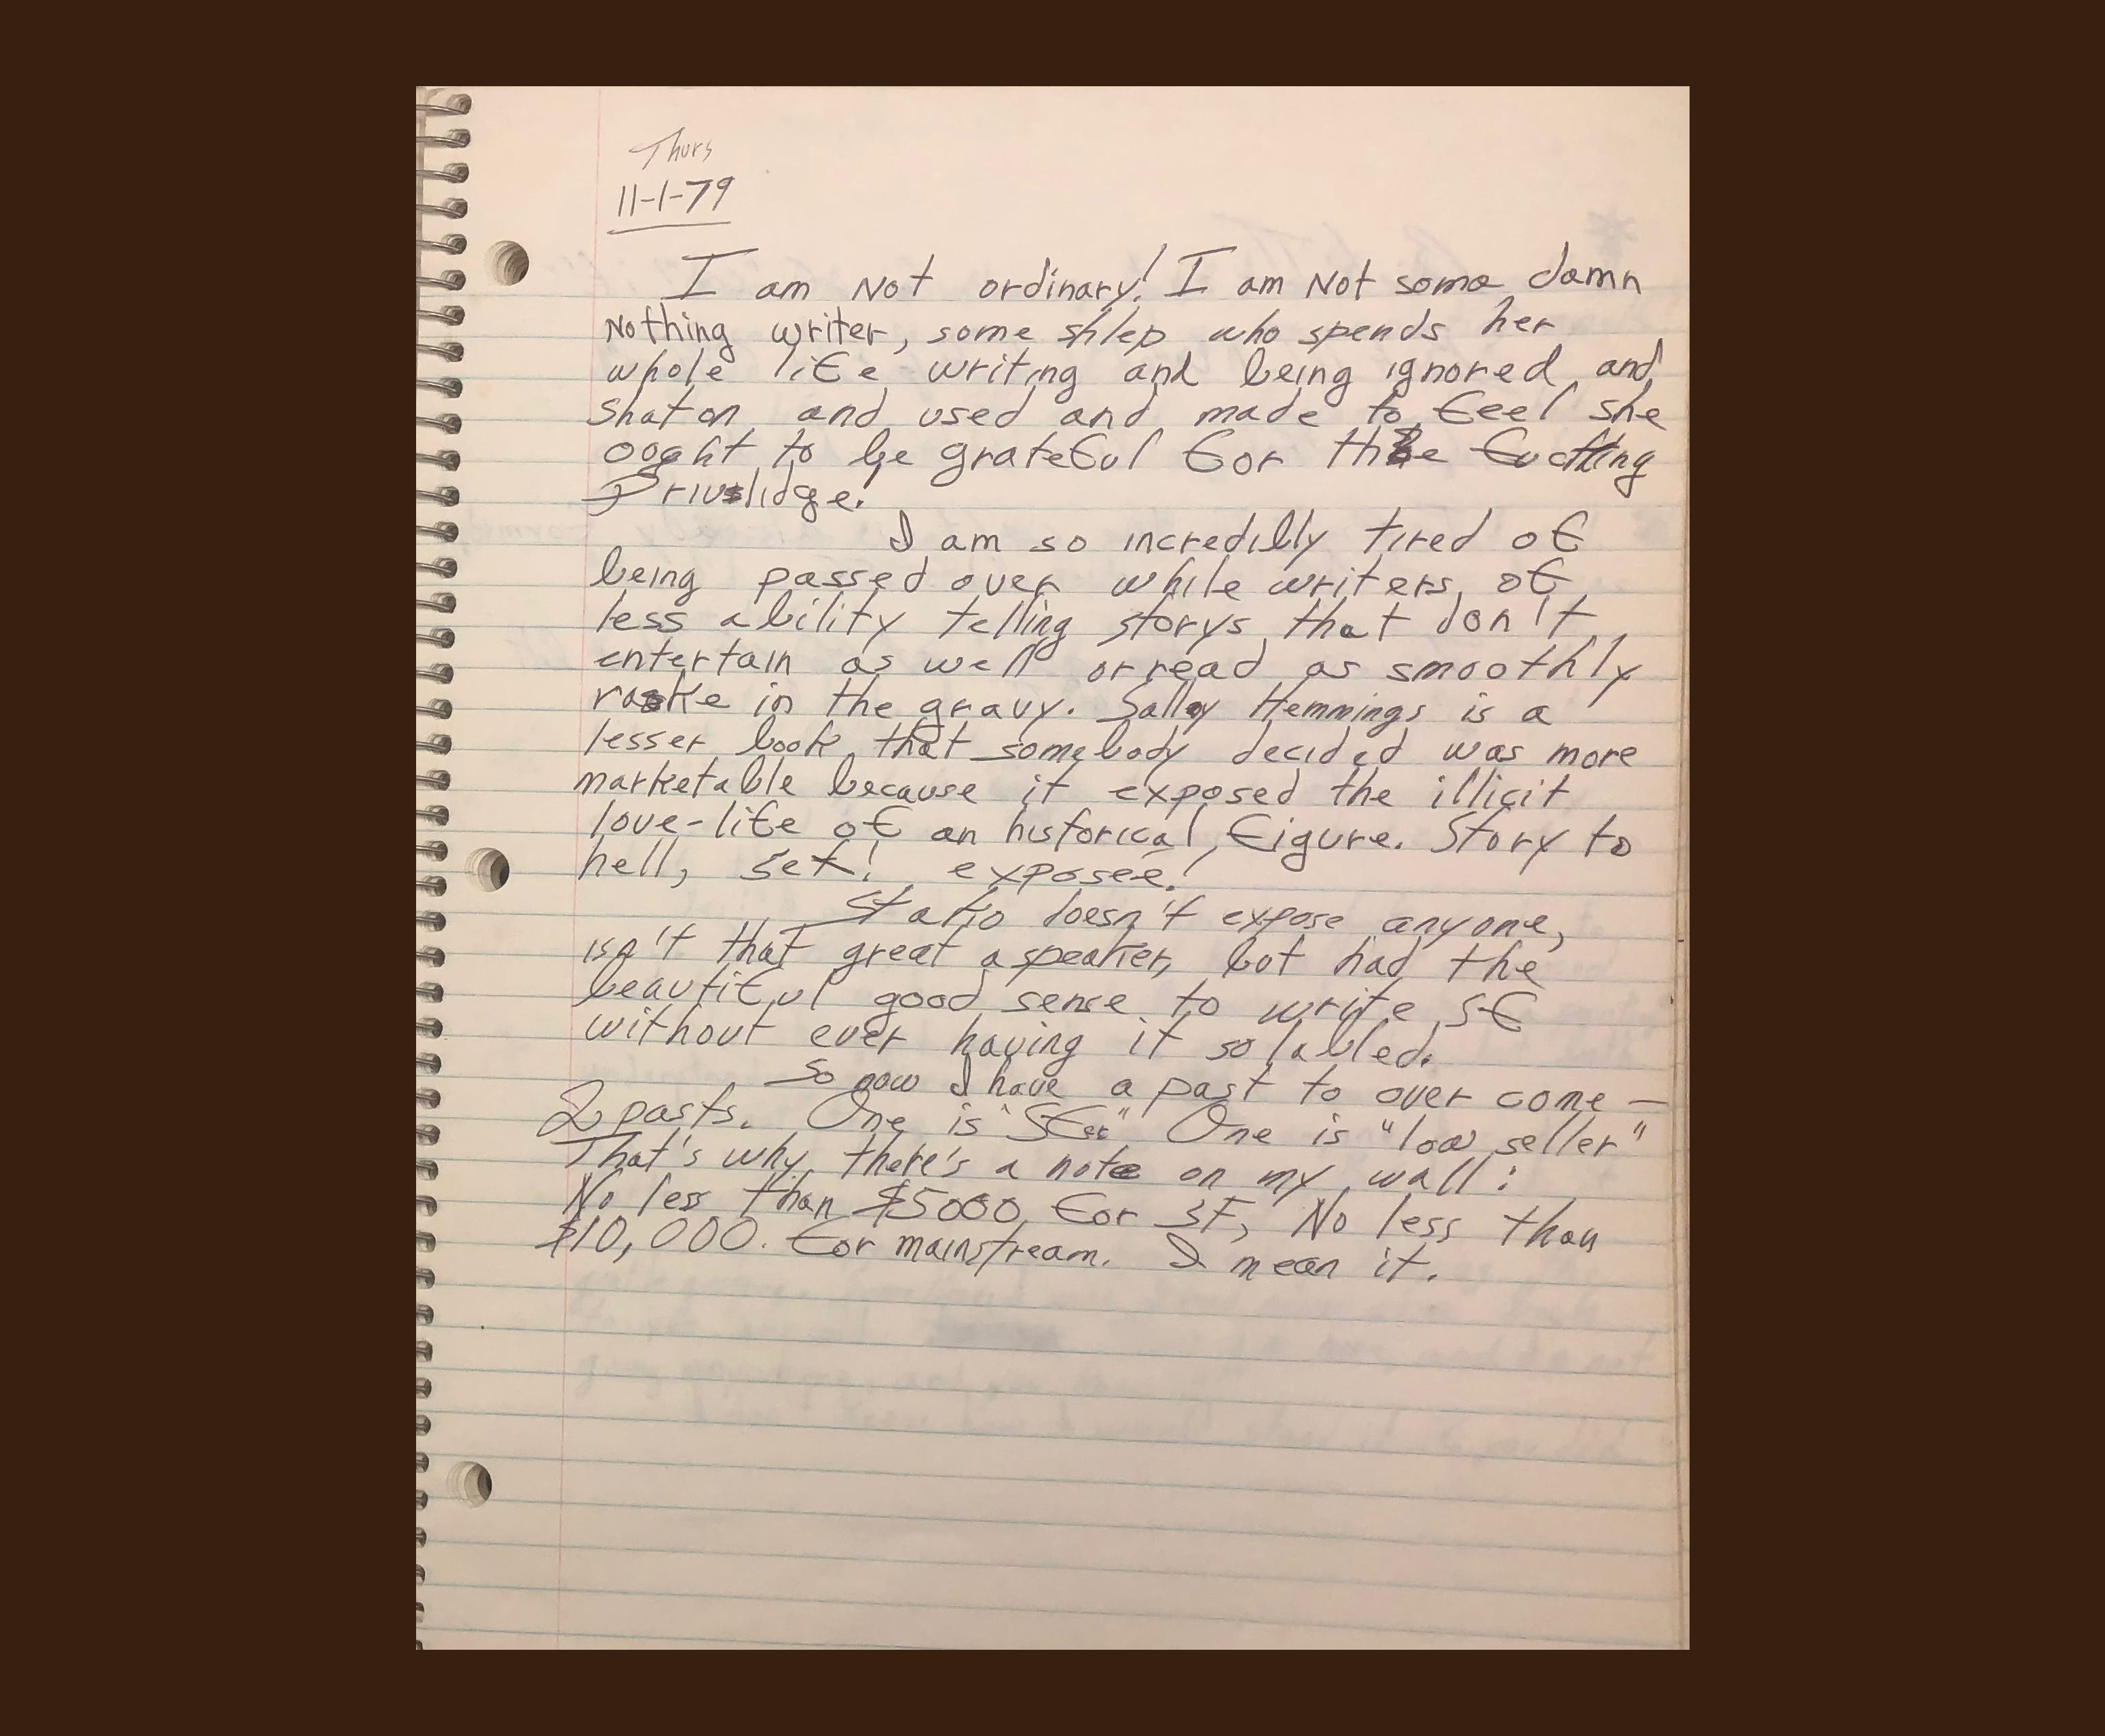 Thurs
11-1-79
I am Not ordinary! I am Not some damn
Nothing writer, some shlep who spends her
whole life writing and being ignored and
shat on and used and made to feel she
ought to be grateful for the fucking
Privilidge!
I am so incredibly tired of
being passed over while writers of
less ability telling storys that don't
entertain as well or read as smoothly
rake in the gravy. Sally Hemmings is a
lesser book that somebody decided was more
marketable because it exposed the illicit
love-life of an historical figure. Story to
hell, sex! exposeé!
Starto doesn't expose anyone,
isn't that great a speaker, but had the
beautiful good sense to write SF
without ever having it so labled.
So now I have a past to over come —
2 pasts. One is "SFer" One is "low seller"
That's why there's a note on my wall:
No less than $5000 for SF, No less than
$10,000. for mainstream. I mean it.